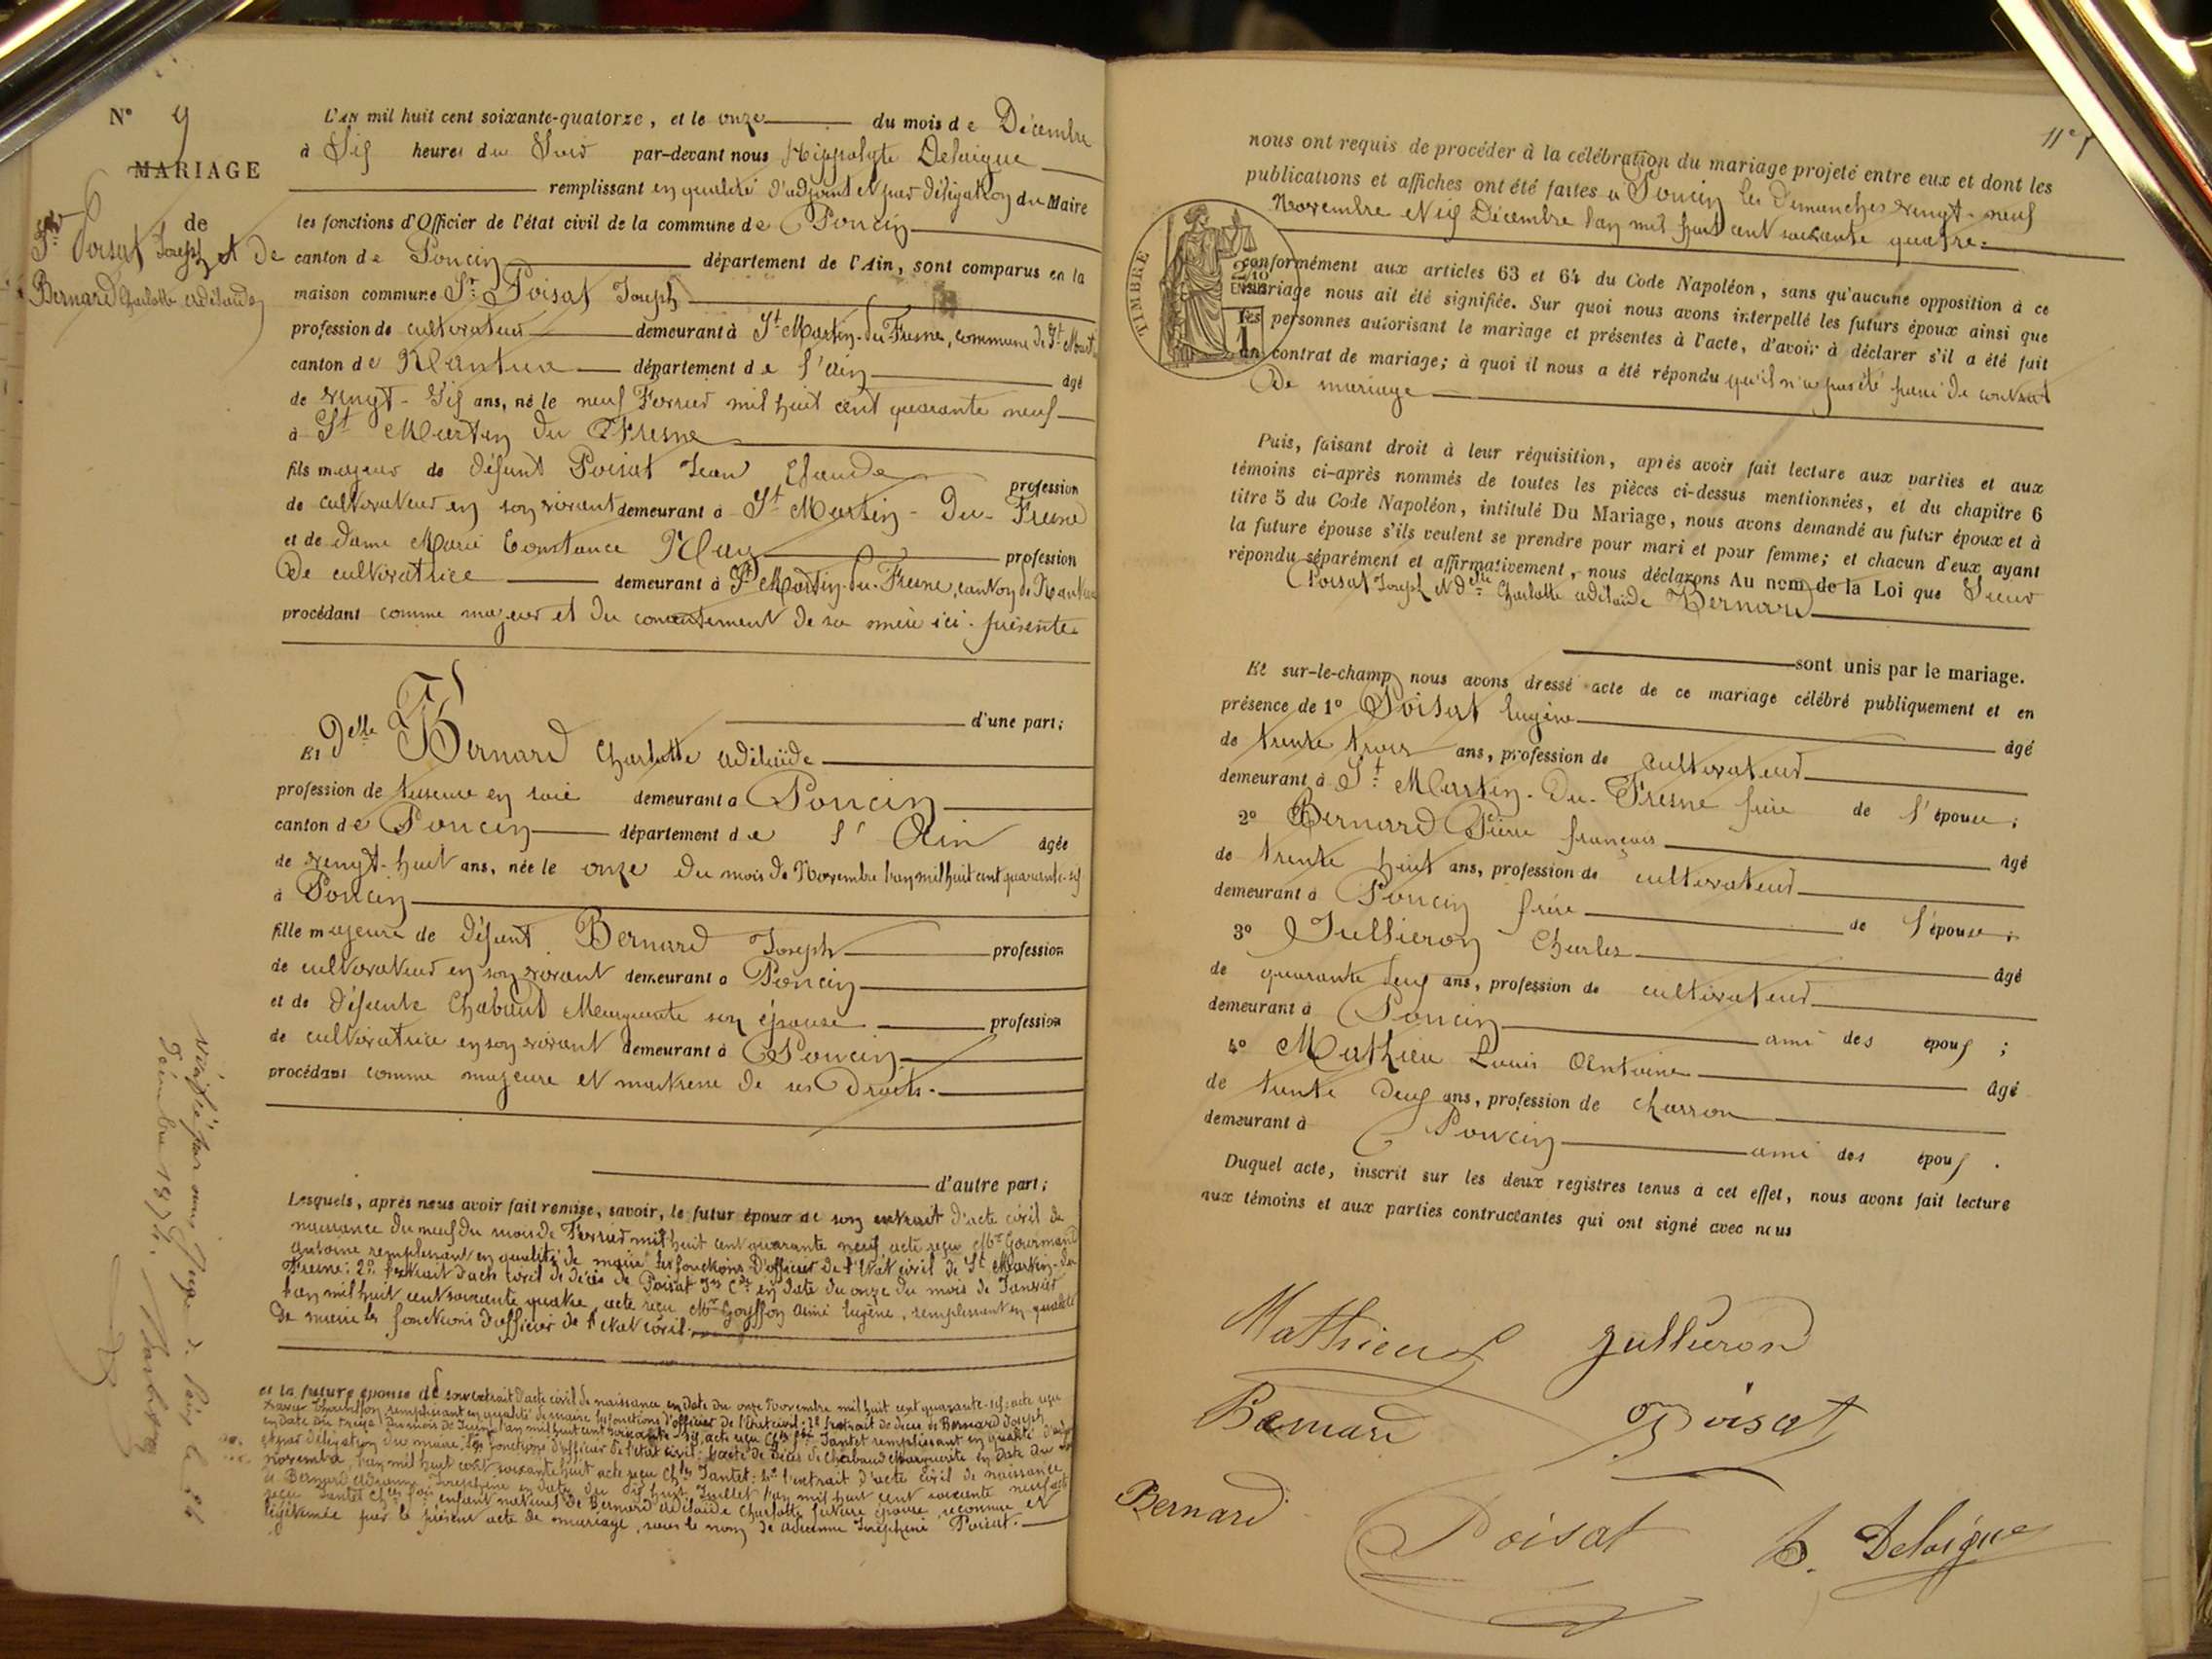 N° 9
MARIAGE
de
Sr Poisat Joseph et de
Bernard Charlotte adélaïde
L'an mil huit cent soixante-quatorze, et le onze du mois de Décembre
à Six heures du Soir par-devant nous Hippolyte Delaigue
remplissant en qualité d'adjoint et par délégation du Maire
les fonctions d'Officier de l'état civil de la commune de Poncin
canton de Poncin département de l'Ain, sont comparus en la
maison commune Sr Poisat Joseph
profession de cultivateur demeurant à St Martin-du-Fresne, commune de St Martin
canton de Nantua département de l'ain âgé
de vingt-six ans, né le neuf Février mil huit cent quarante neuf
à St Martin du Fresne
fils majeur de défunt Poisat Jean Claude profession
de cultivateur en son vivant demeurant à St Martin-du-Fresne
et de dame Marie Constance Nay profession
de cultivatrice demeurant à St Martin-du-Fresne, canton de Nantua
procédant comme majeur et du consentement de sa mère ici-présente
d'une part;
Et Delle Bernard Charlotte adélaïde
profession de tisseuse en soie demeurant à Poncin
canton de Poncin département de l'Ain âgée
de vingt-huit ans, née le onze du mois de Novembre l'an mil huit cent quarante-six
à Poncin
fille majeure de défunt Bernard Joseph profession
de cultivateur en son vivant demeurant à Poncin
et de défunte Chabaud Marguerite son épouse profession
de cultivatrice en son vivant demeurant à Poncin
procédant comme majeure et maitresse de ses Droits.
d'autre part;
Lesquels, après nous avoir fait remise, savoir, le futur époux de son extrait d'acte civil de
naissance du neuf du mois de Février mil huit cent quarante neuf, acte reçu Mr Gourmand
Antoine remplissant en qualité de maire les fonctions d'officier de l'Etat civil de St Martin-du
Fresne: 2° l'extrait d'acte civil de décès de Poisat Jn Cde en date du onze du mois de Janvier
l'an mil huit cent soixante quatre, acte reçu Mr Goyffon Aimé Eugène, remplissant en qualité
de maire les fonctions d'officier de l'état civil.
et la future épouse de son extrait d'acte civil de naissance en date du onze Novembre mil huit cent quarante-six, acte reçu
Xavier remplissant en qualité de maire les fonctions d'officier de l'état civil: 2° l'extrait de décès de Bernard Joseph
en date du treize du mois de Juin l'an mil huit cent soixante six, acte reçu Chles Fois Jantet remplissant en qualité d'adjoint
et par délégation du maire, les fonctions d'officier de l'état civil: l'acte de décès de Chabaud Marguerite en date du
novembre, l'an mil huit cent soixante huit acte reçu Chles Jantet: 4° l'extrait d'acte civil de naissance
de Bernard adrienne Joséphine en date du dix huit Juillet l'an mil huit cent soixante neuf acte
reçu Jantet Chles Fois enfant naturel de Bernard adélaïde Charlotte future épouse, reconnue et
légitimée par le présent acte de mariage, sous le nom de adrienne Joséphine Poisat.
Vérifié par nous Juge de Paix le
Décembre 1874.
nous ont requis de procéder à la célébration du mariage projeté entre eux et dont les
publications et affiches ont été faites à Poncin les Dimanches vingt-neuf
Novembre et six Décembre l'an mil huit cent soixante quatre.
TIMBRE
2/10
EN SUS
1
conformément aux articles 63 et 64 du Code Napoléon, sans qu'aucune opposition à ce
mariage nous ait été signifiée. Sur quoi nous avons interpellé les futurs époux ainsi que
les personnes autorisant le mariage et présentes à l'acte, d'avoir à déclarer s'il a été fait
un contrat de mariage; à quoi il nous a été répondu qu'il n'a pas été passé de contrat
de mariage
Puis, faisant droit à leur réquisition, après avoir fait lecture aux parties et aux
témoins ci-après nommés de toutes les pièces ci-dessus mentionnées, et du chapitre 6
titre 5 du Code Napoléon, intitulé Du Mariage, nous avons demandé au futur époux et à
la future épouse s'ils veulent se prendre pour mari et pour femme; et chacun d'eux ayant
répondu séparément et affirmativement, nous déclarons Au nom de la Loi que Sieur
Poisat Joseph et delle Charlotte adélaïde Bernard
sont unis par le mariage.
Et sur-le-champ nous avons dressé acte de ce mariage célébré publiquement et en
présence de 1° Poisat Eugène âgé
de trente trois ans, profession de cultivateur
demeurant à St Martin-du-Fresne frère de l'époux;
2° Bernard Pierre françois âgé
de trente huit ans, profession de cultivateur
demeurant à Poncin frère de l'épouse;
3° Jullieron Charles âgé
de quarante deux ans, profession de cultivateur
demeurant à Poncin ami des époux;
4° Mathieu Louis Antoine âgé
de trente deux ans, profession de charron
demeurant à Poncin ami des époux.
Duquel acte, inscrit sur les deux registres tenus à cet effet, nous avons fait lecture
aux témoins et aux parties contractantes qui ont signé avec nous
Mathieu Jullieron
Bernard Poisat
Bernard Poisat h. Delaigue